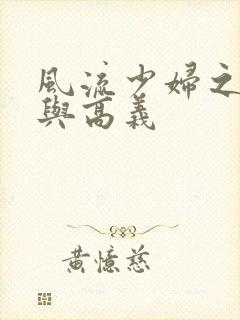 風流少婦之
與高義
黃憶慈